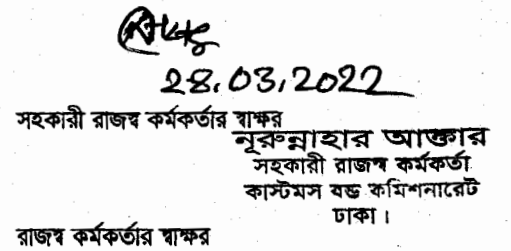 28.03.2022
সহকারী রাজস্ব কর্মকর্তার স্বাক্ষর
নূরুন্নাহার আক্তার
সহকারী রাজস্ব কর্মকর্তা
কাস্টমস বন্ড কমিশনারেট
ঢাকা।
রাজস্ব কর্মকর্তার স্বাক্ষর